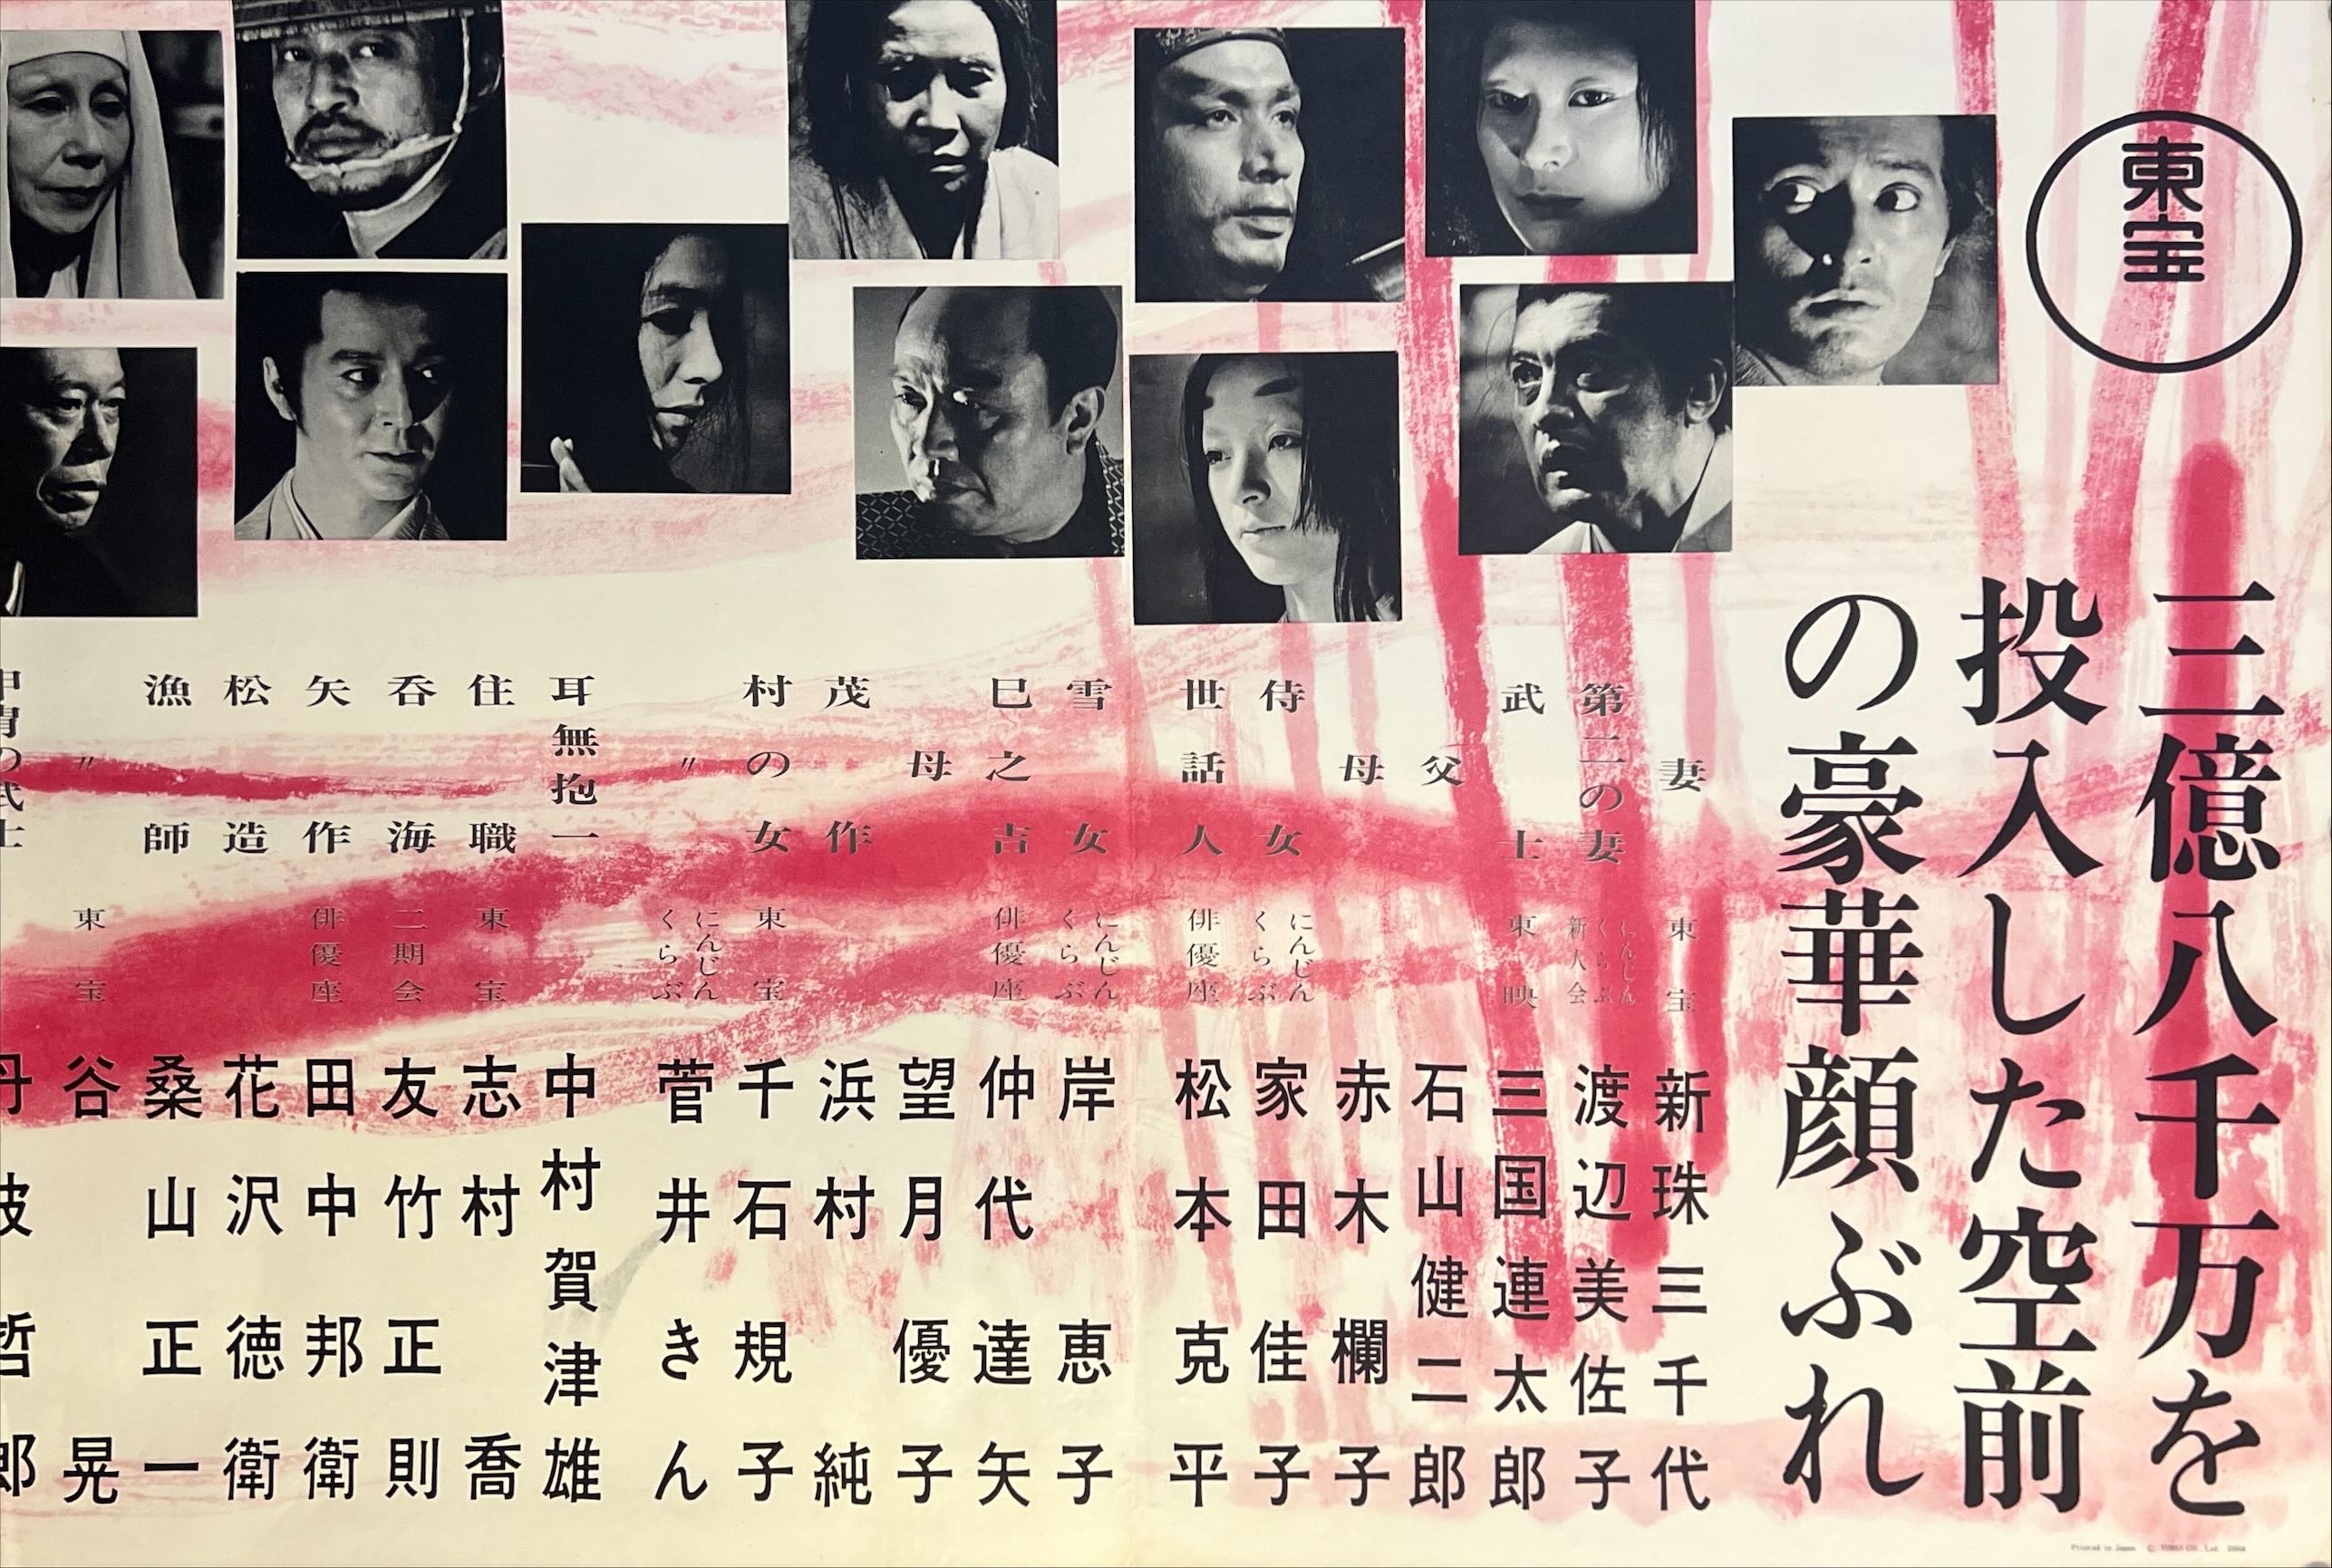 東宝
三億八千万を
投入した空前
の豪華顔ぶれ
妻 東宝 新珠三千代
第二の妻 にんじんくらぶ 新人会 渡辺美佐子
武士 東映 三国連太郎
父 石山健二郎
母 赤木欄子
侍女 にんじんくらぶ 家田佳子
世話人 俳優座 松本克平
雪女 にんじんくらぶ 岸恵子
巳之吉 俳優座 仲代達矢
母 望月優子
茂作 浜村純
村の女 東宝 千石規子
〃 にんじんくらぶ 菅井きん
耳無抱一 中村賀津雄
住職 東宝 志村喬
呑海 二期会 友竹正則
矢作 俳優座 田中邦衛
松造 花沢徳衛
漁師 桑山正一
〃 東宝 谷晃
甲冑の武士 丹波哲郎
Printed in Japan © TOHO CO., Ltd. 1964